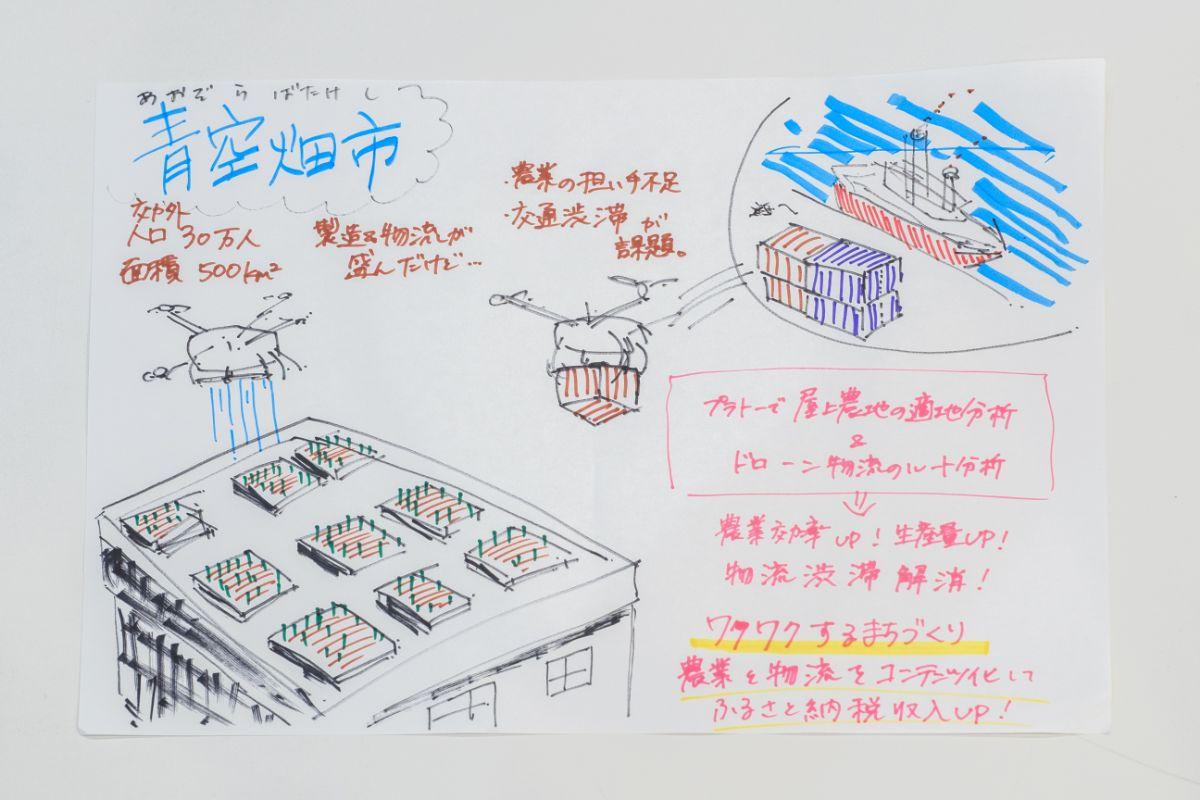 あおぞらばたけし
青空畑市
郊外
人口 30万人
面積 500km²
製造&物流が
盛んだけど…
・農業の担い手不足
・交通渋滞が
課題。
プラトーで屋上農地の適地分析
&
ドローン物流のルート分析
農業効率UP!生産量UP!
物流渋滞解消!
ワクワクするまちづくり
農業と物流をコンテンツ化して
ふるさと納税収入UP!